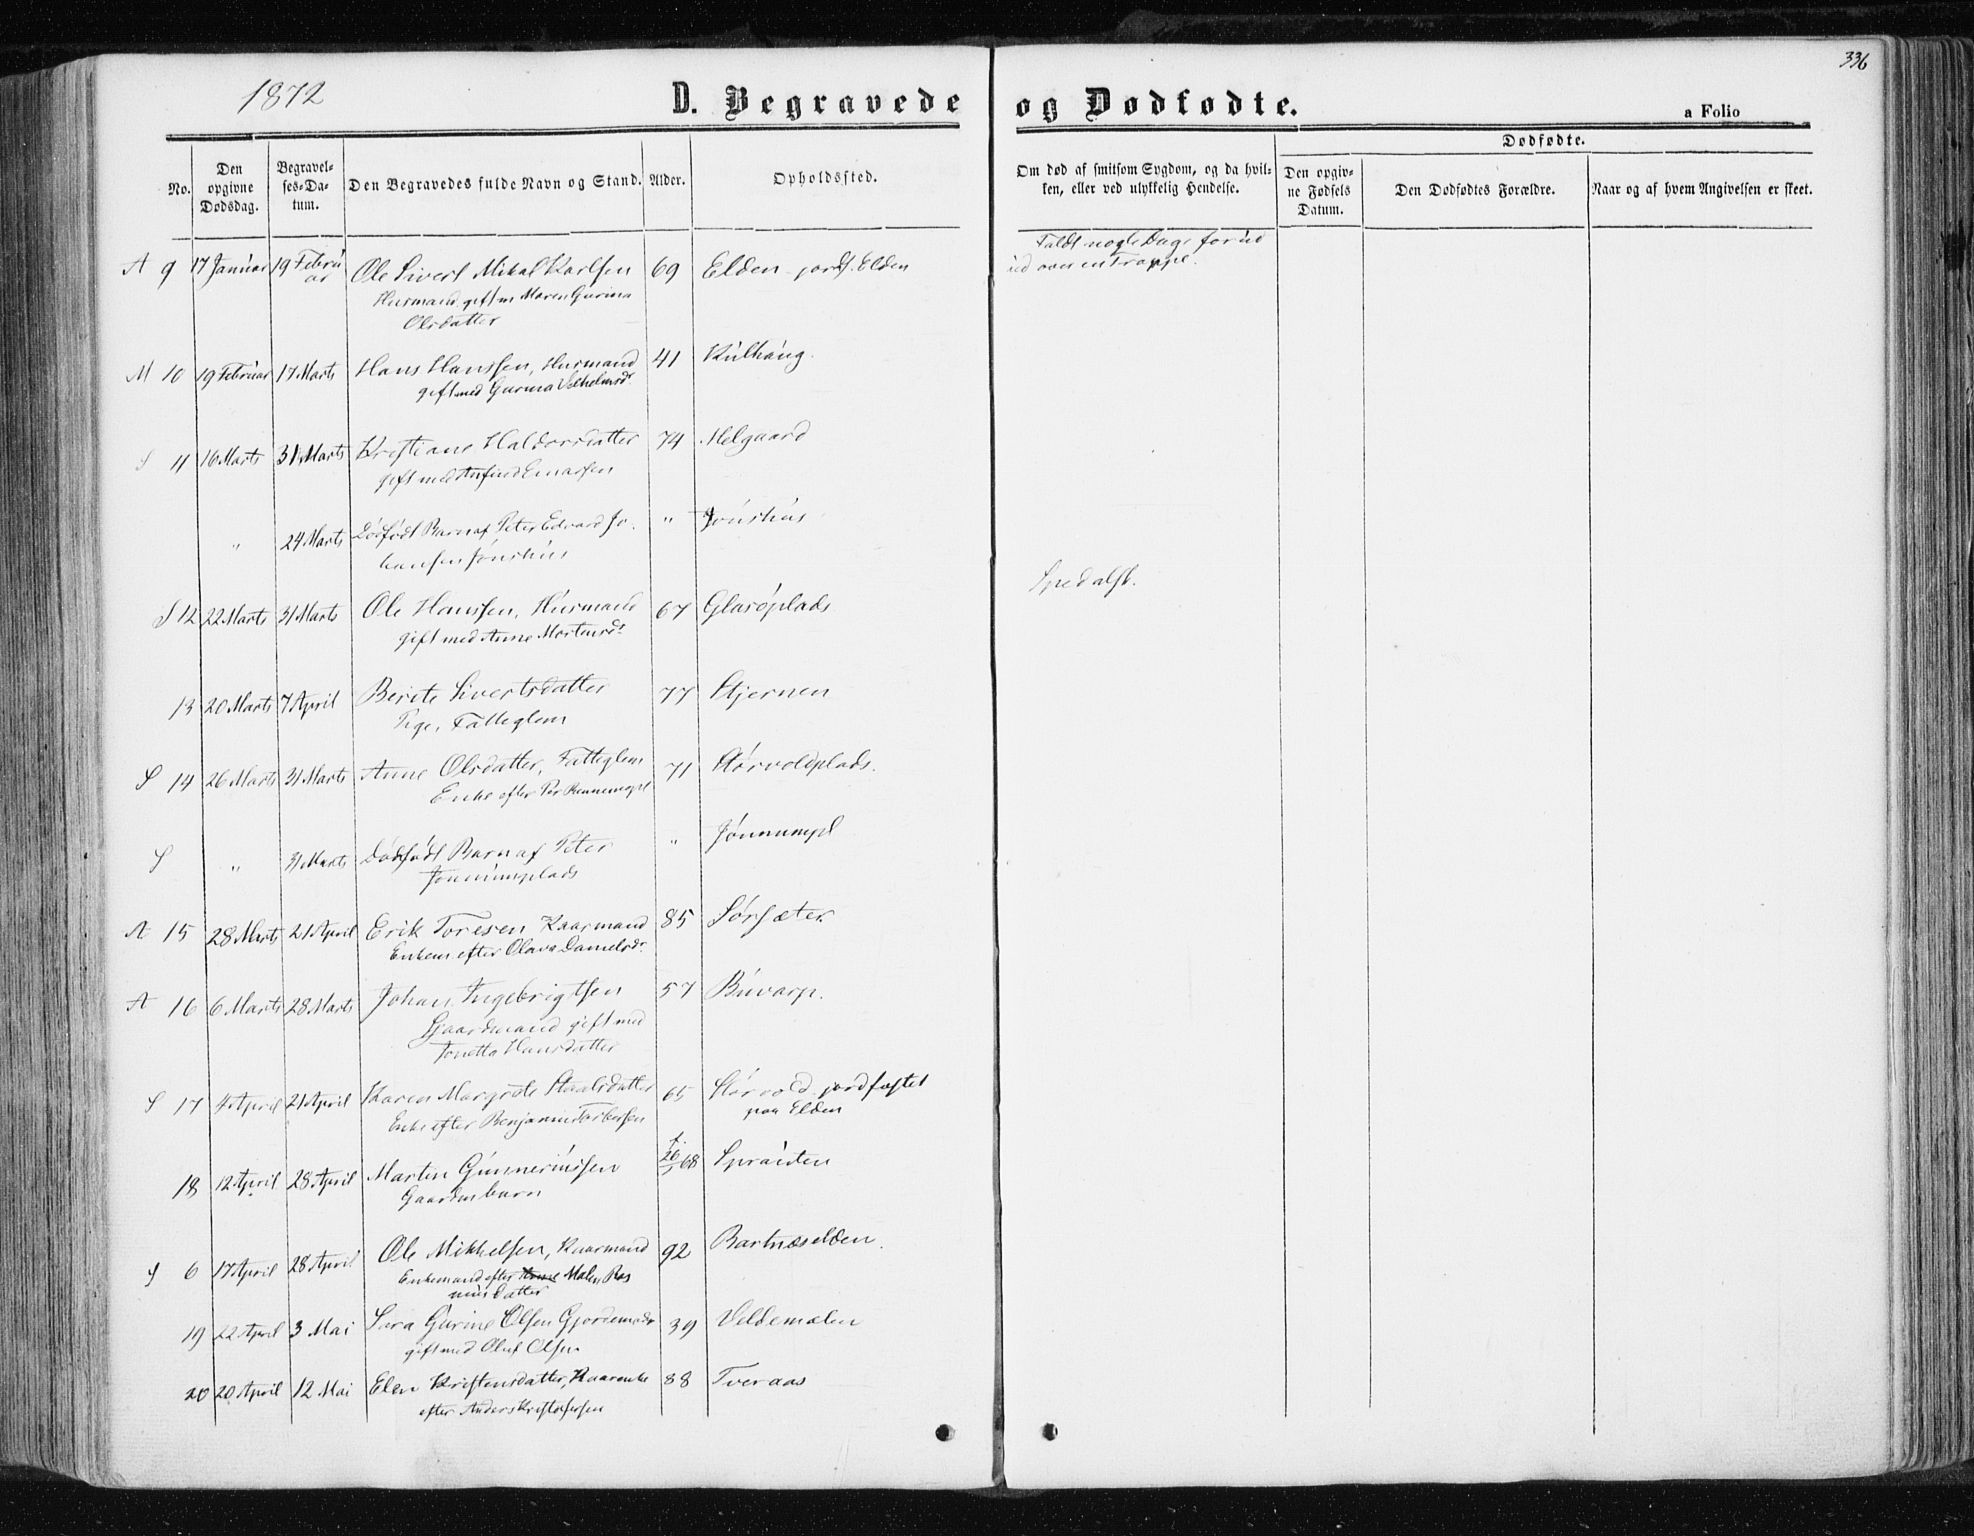 336
1872
D. Begravede og Dødfødte.
a Folio
No.
Den opgivne Dødsdag.
Begravelses-Datum.
Den Begravedes fulde Navn og Stand.
Alder.
Opholdssted.
Om død af smitsom Sygdom, og da hvilken, eller ved ulykkelig Hendelse.
Dødfødte.
Den opgivne Fødsels Datum.
Den Dødfødtes Forældre.
Naar og af hvem Angivelsen er skeet.
A 9 17 Januar 19 Februar Ole Sivert Mikal Karlsen 69 Elden jordf. Elden Faldt nogle Dage forud
ud over en Trappe.
Husmand gift m Maren Gurina
Olsdatter
M 10 19 Februar 17 Marts Hans Hanssen, Husmand 41 Kulhaug.
gift med Gurina
S 11 16 Marts 31 Marts Kristiane Haldorsdatter 74 Melgaard
gift med Arfind Enarsen
" 24 Marts Dødfødt Barn af Peter Edvard Jo- " Jonshus
hansen Jonshus
S 12 22 Marts 31 Marts Ole Hanssen, Husmand 67 Glasøplads Spedalsk.
gift med Anne Mortensdr
13 20 Marts 7 April Berete Sivertsdatter 77 Stjernen
Pige, Fatteglem
S 14 26 Marts 31 Marts Anne Olsdatter, Fatteglem 71 Størvoldplads.
Enke efter Per
S " 31 Marts Dødfødt Barn af Peter " Jønnumpl
Jønnumplads
A 15 28 Marts 21 April Erik Toresen Kaarmand 85 Sørsæter
Enkem. efter Olava Danielsdr.
A 16 6 Marts 28 Marts Johan Ingebrigtsen 57 Buvarp.
Gaardmand gift med
Tonetta Hansdatter
S 17 4 April 21 April Karen Margrete Staalsdatter 65 Størvold jordfæstet
paa Elden
Enke efter Benjamin Torbersen
18 12 April 28 April Martin Gunneriussen 26 68 Sprauten
Gaardmbarn
S 6 17 April 28 April Ole Mikkelsen, Kaarmand 92 Bartnæselden.
Enkemand efter Anne Malen Ras
musdatter
19 22 April 3 Mai Sara Gurine Olsen Gjordemodr 39 Veldemælen
gift med Oluf Olsen
20 20 April 12 Mai Elen Kristensdatter, Kaarenke 88 Tveraas
efter Anders Kristofersen